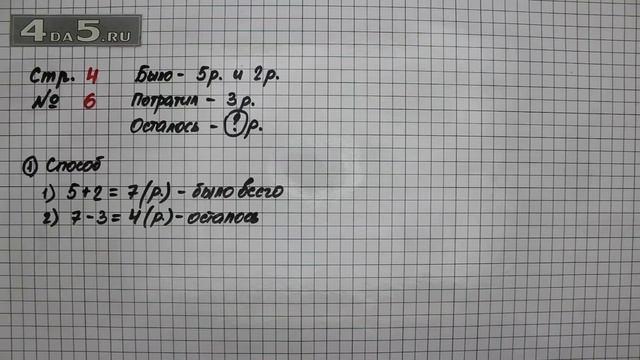 4DA5.RU
Стр. 4 Было - 5р. и 2р.
№ 6 Потратил - 3р.
Осталось - ? р.
1 Способ
1) 5+2=7(р.) - было всего
2) 7-3=4(р.) - осталось